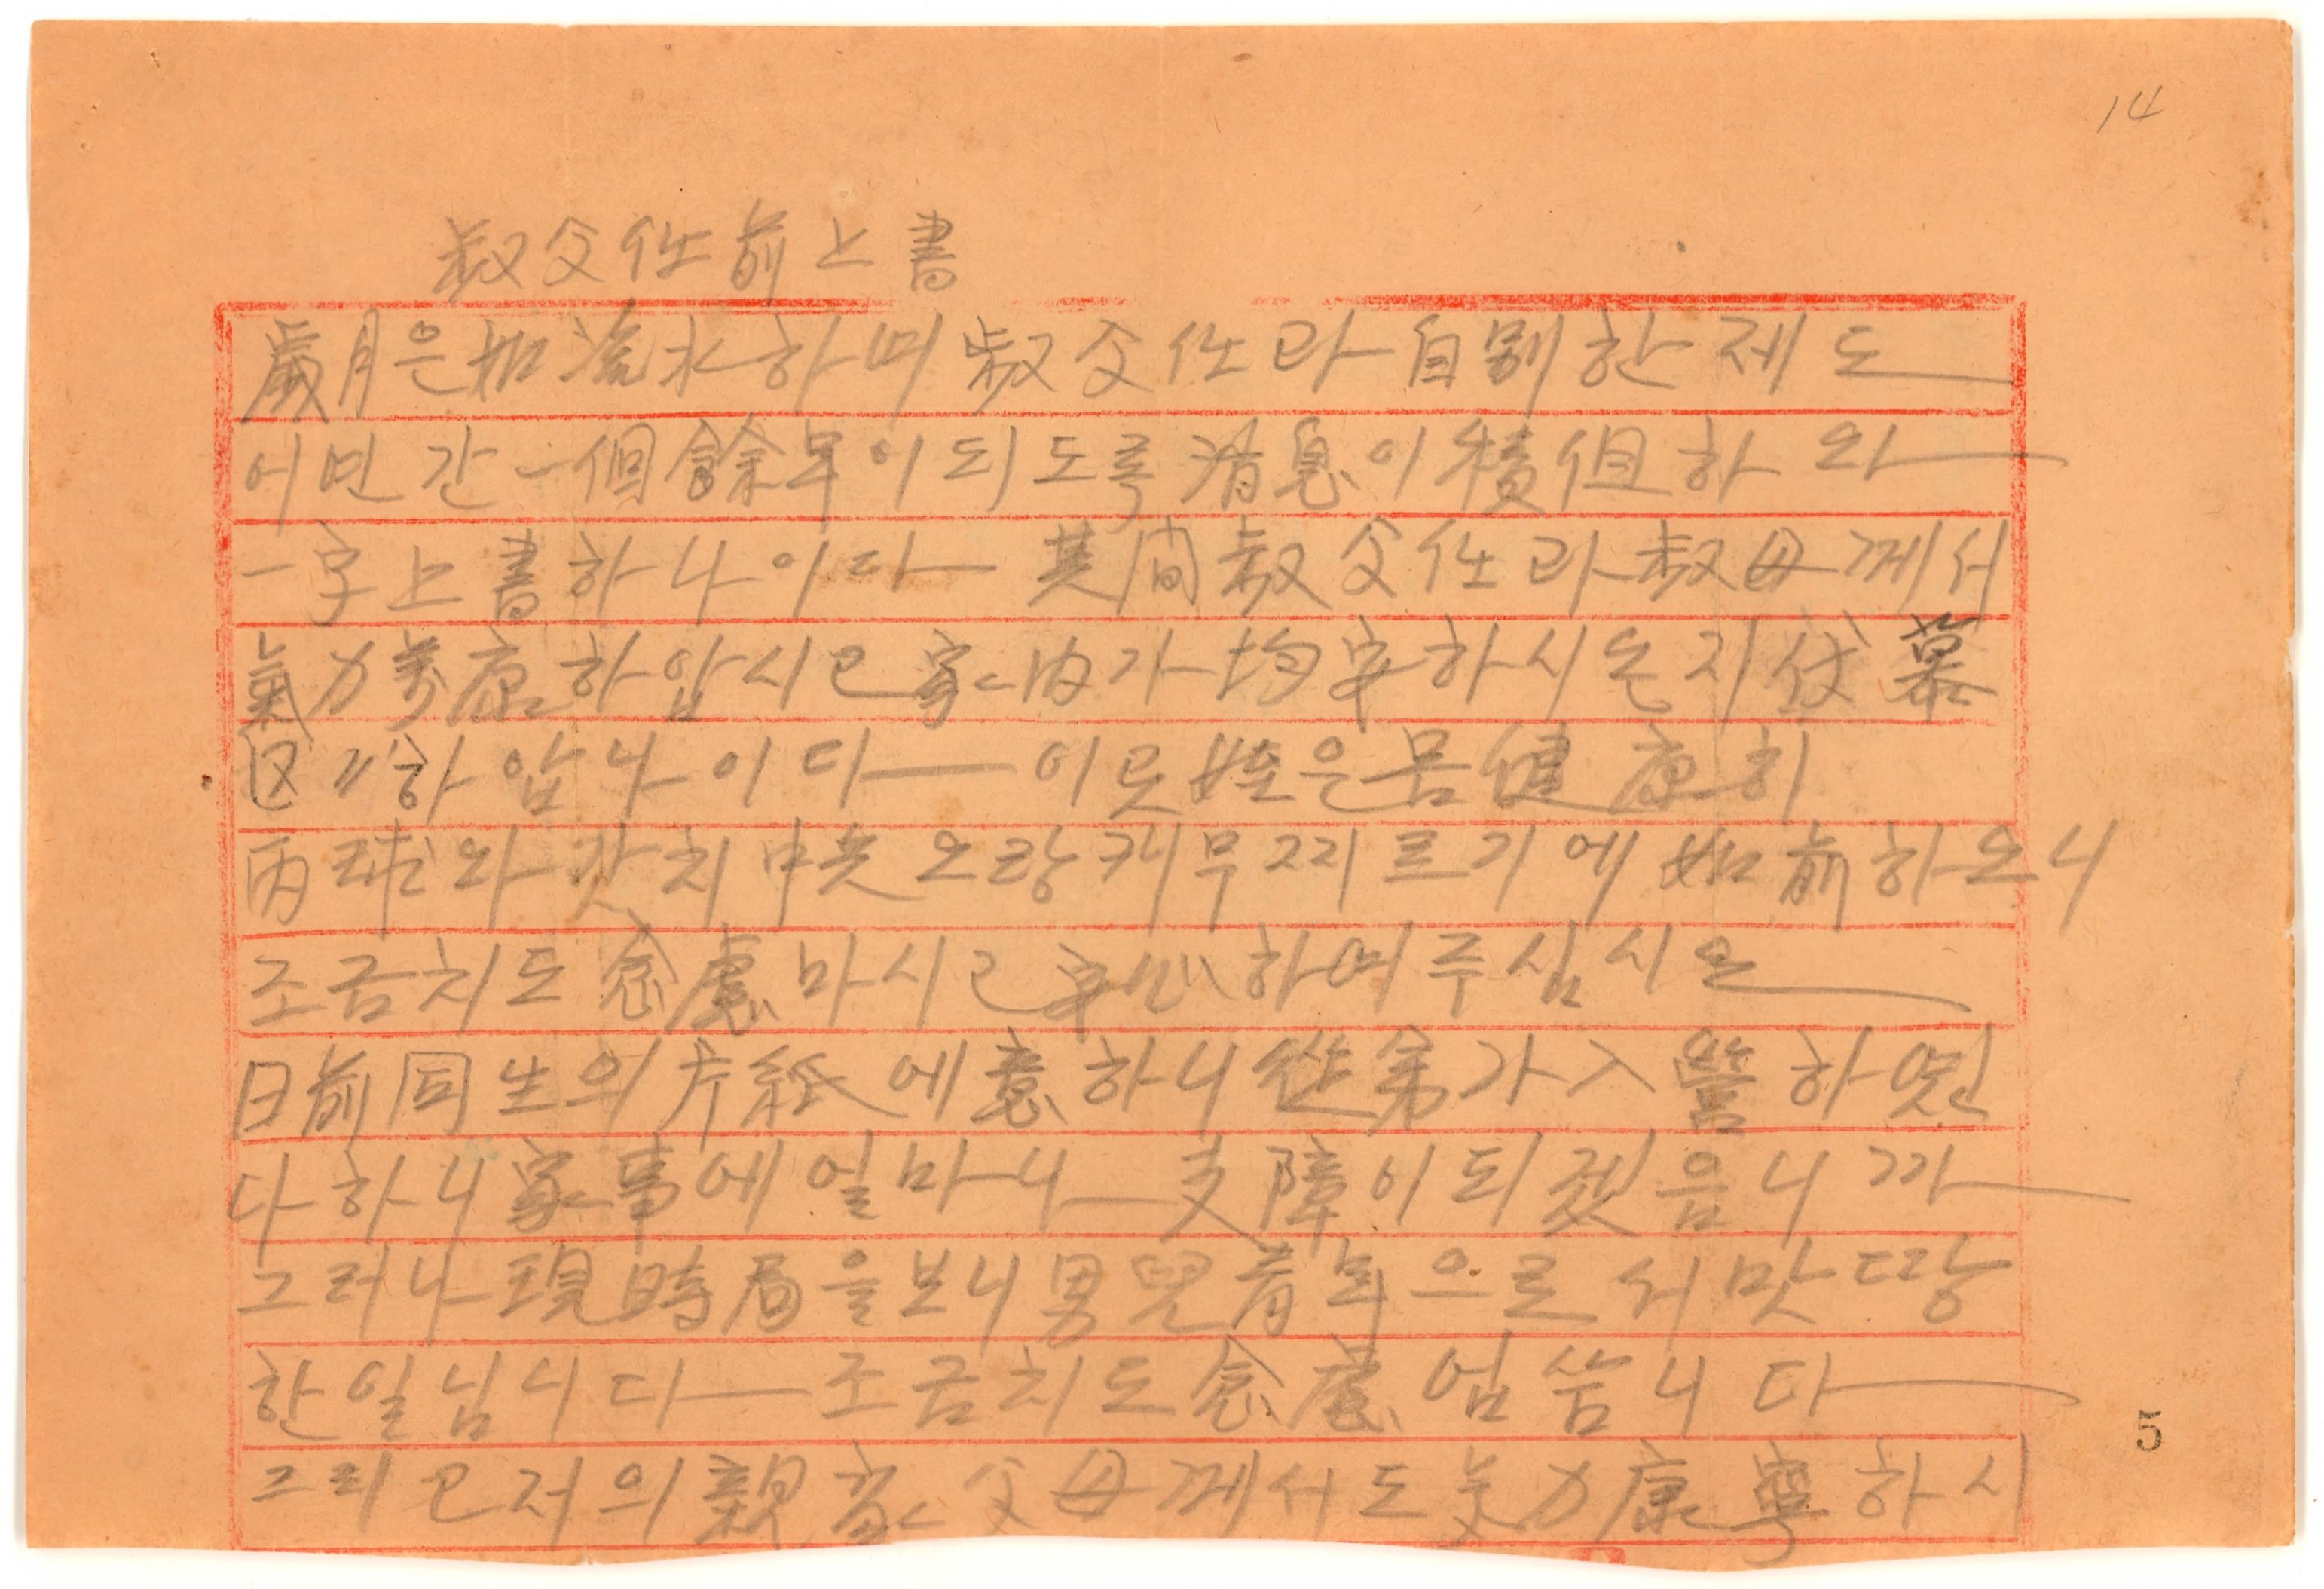 14
叔父任前上書
歲月은如流水하며叔父任과自別한제도
어면간一個餘年이되도록消息이積但하와
一字上書하나이다 其間叔父任과叔母께서
氣力万康하압시고家內가均安하시온지伏慕
区〃하압나이다 이곳姪은몸健康히
丙球와갓치中央오랑캐무찌르기에如前하오니
조금치도念慮마시고安心하여주심시요
日前同生의片紙에意하니從弟가入營하엿
다하니家事에얼마나支障이되겠음니까
그러나現時局을보니男兒青年으로서맛당
한일님니다 조금치도念慮업씀니다
그리고저의親家父母께서도氣力康寧하시
5